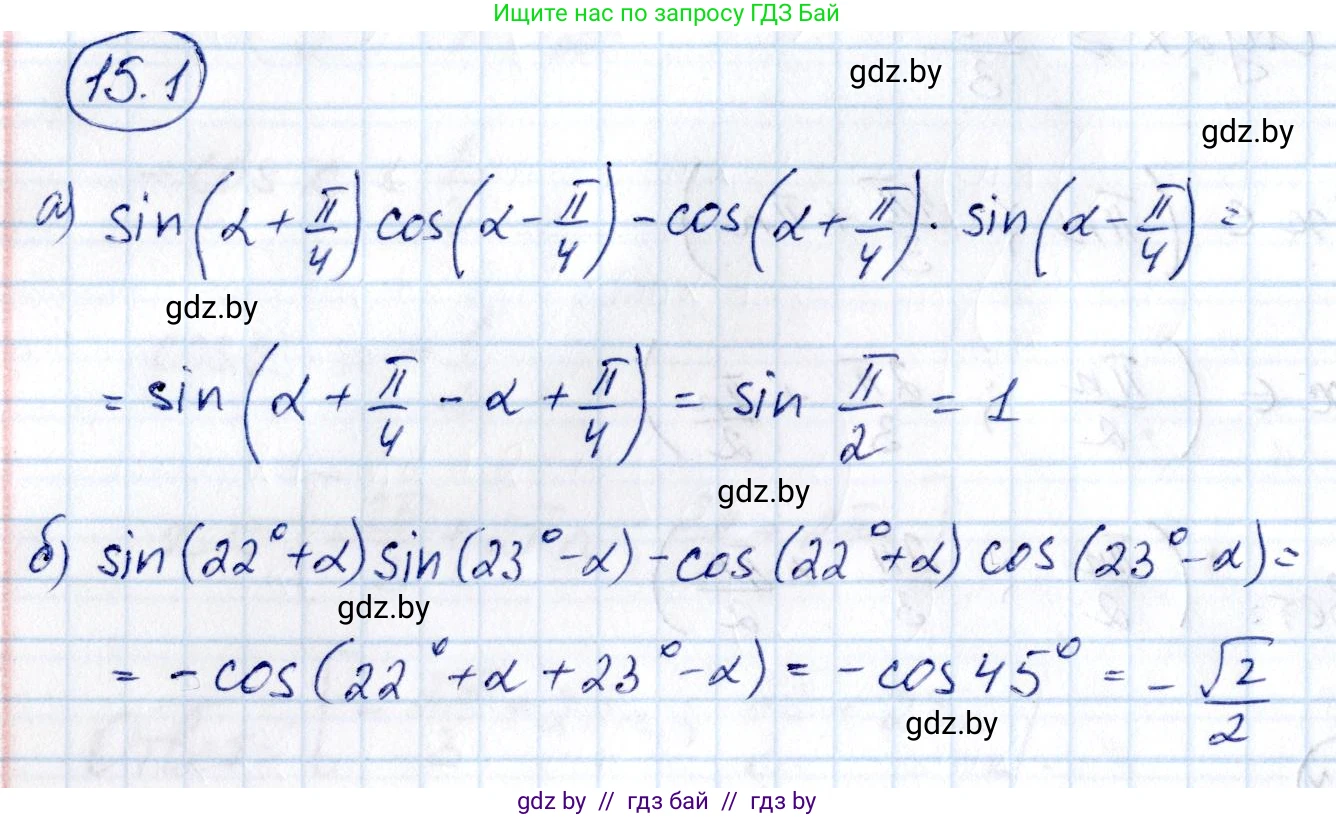 Ищите нас по запросу ГДЗ Бай
15.1
gdz.by
gdz.by
а) sin(α + π/4) cos(α - π/4) - cos(α + π/4) · sin(α - π/4) =
gdz.by
= sin(α + π/4 - α + π/4) = sin π/2 = 1
gdz.by
б) sin(22° + α) sin(23° - α) - cos(22° + α) cos(23° - α) =
gdz.by
= - cos(22° + α + 23° - α) = - cos 45° = - √2/2
gdz.by
gdz by // гдз бай // гдз by